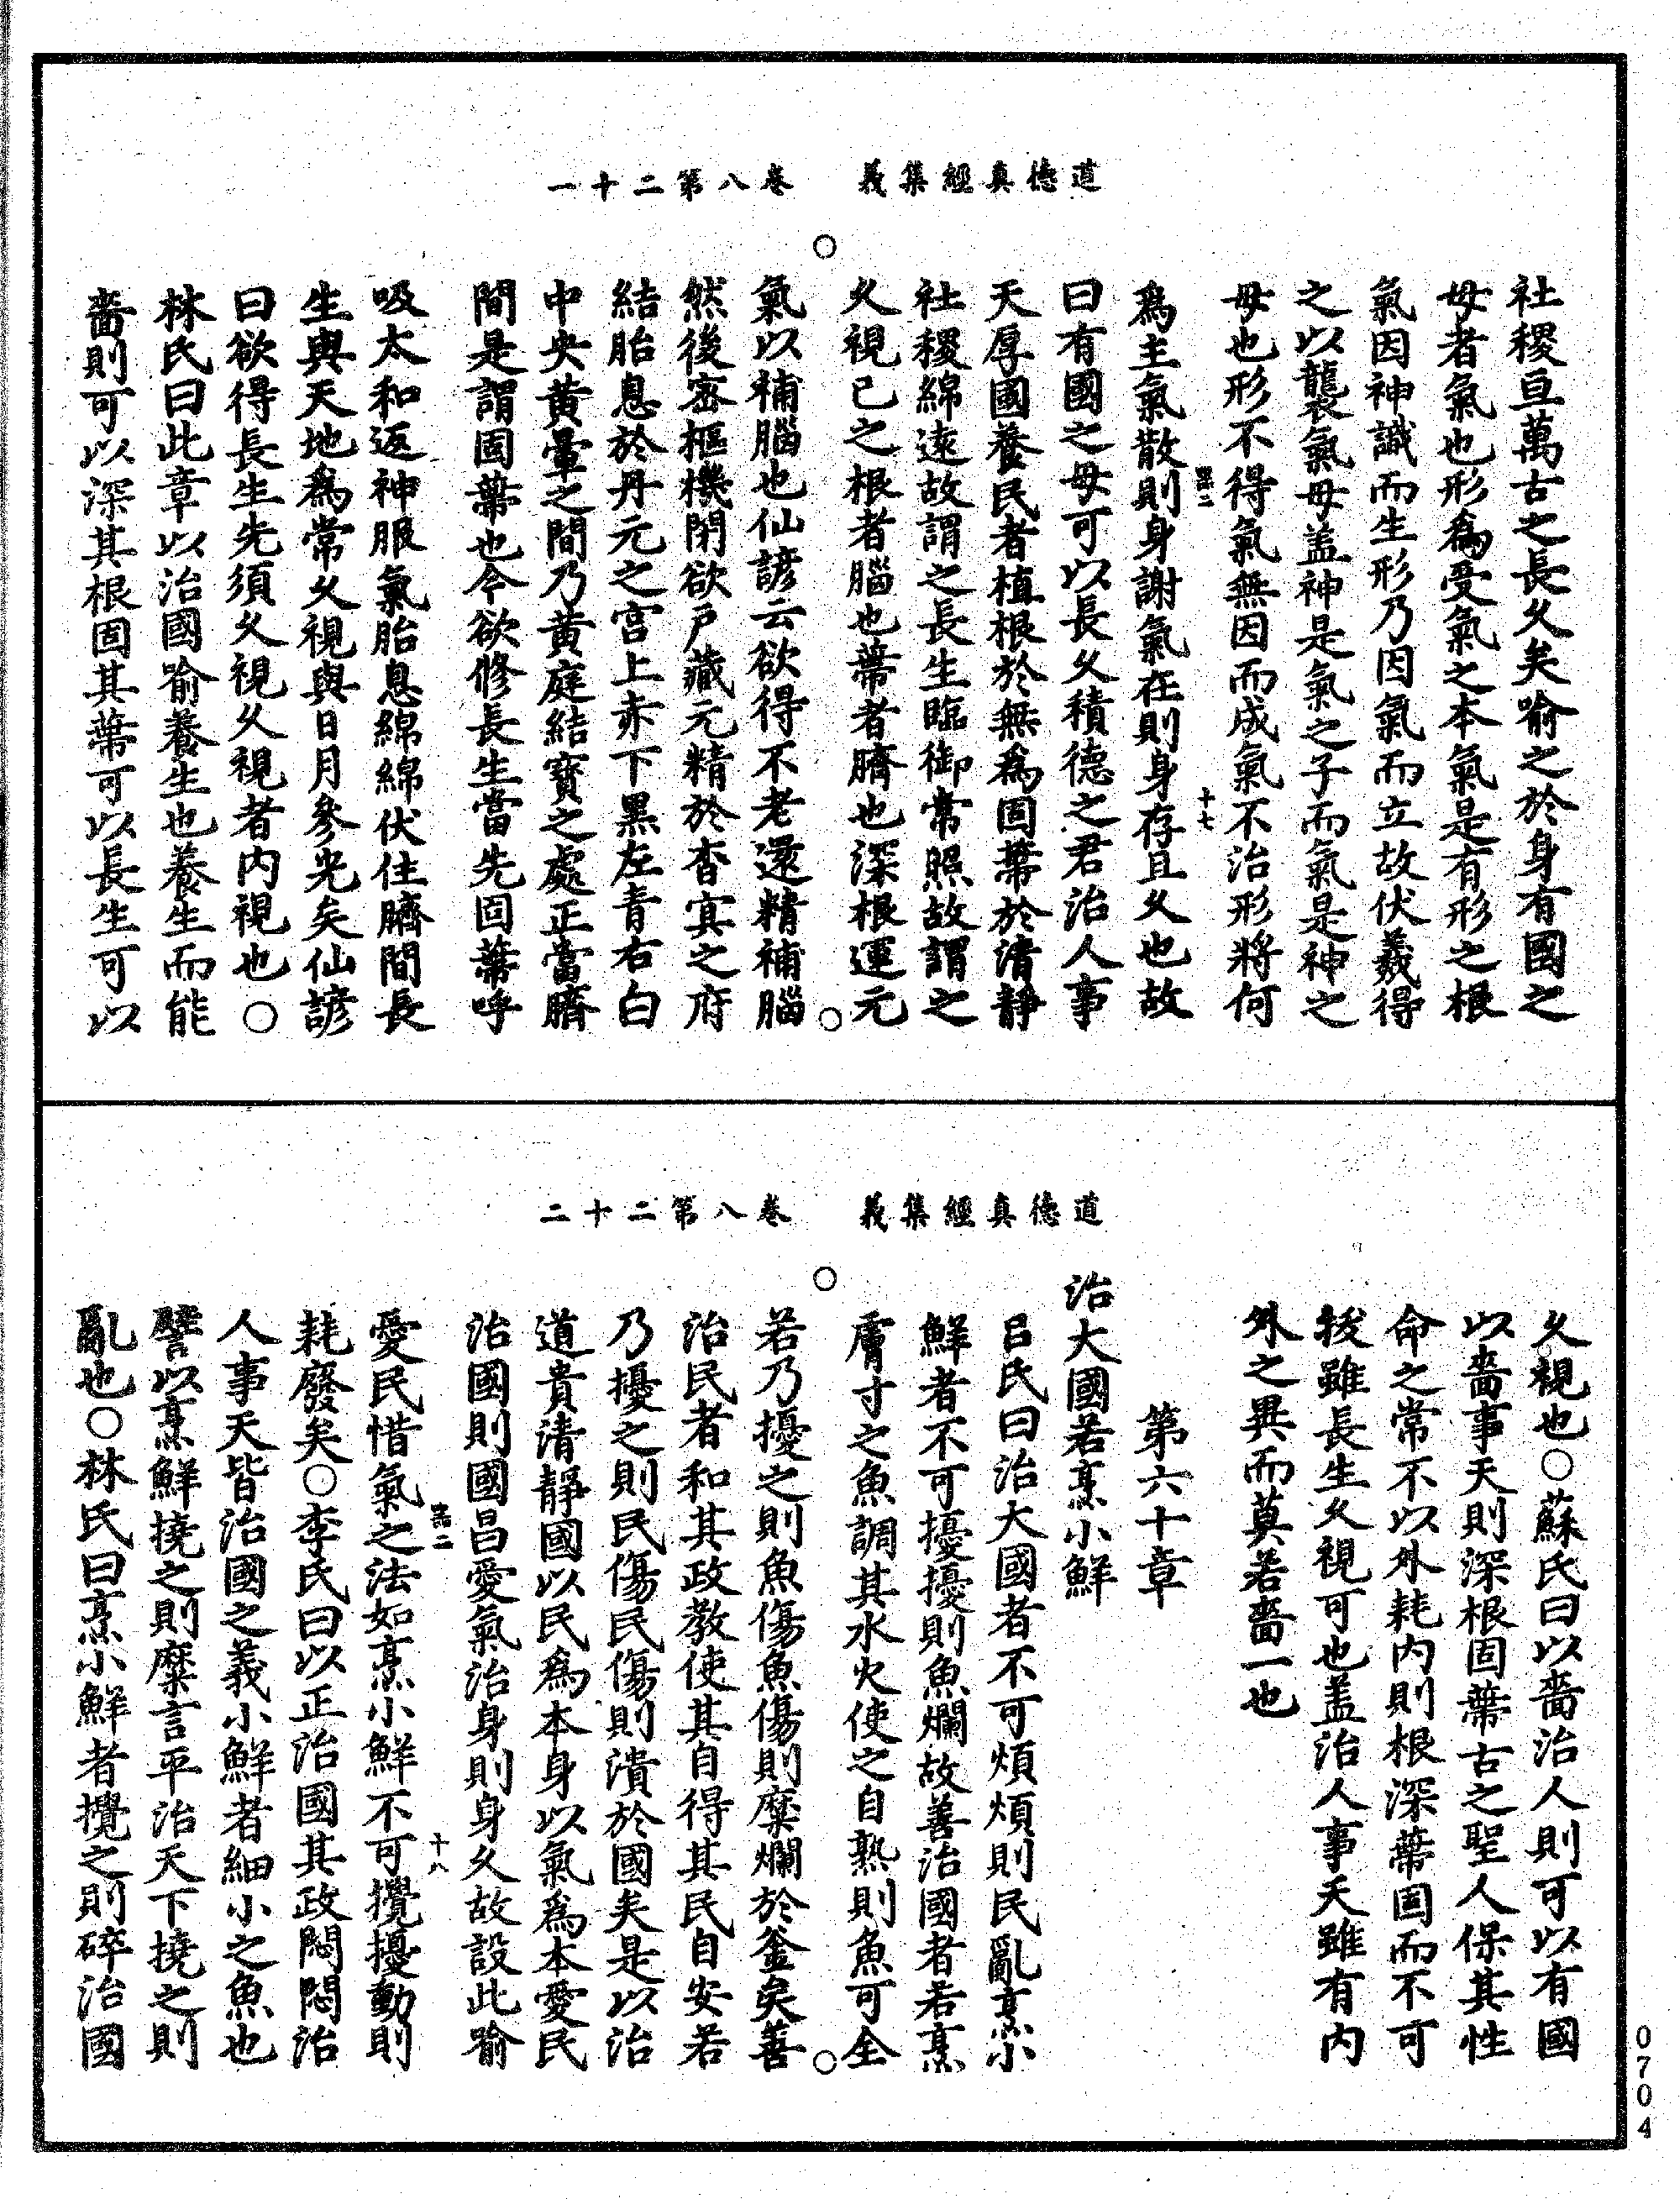 道德真經集義　卷八第二十一
社稷亘萬古之長久矣喻之於身有國之
母者氣也形為受氣之本氣是有形之根
氣因神識而生形乃因氣而立故伏羲得
之以襲氣母盖神是氣之子而氣是神之
母也形不得氣無因而成氣不治形將何
十七
為主氣散則身謝氣在則身存且久也故
曰有國之母可以長久積德之君治人事
天厚國養民者植根於無為固蔕於清靜
社稷綿遠故謂之長生臨御常照故謂之
久視已之根者腦也蔕者臍也深根運元
氣以補腦也仙諺云欲得不老還精補腦
然後密樞機閉欲戶藏元精於杳㝠之府
結胎息於丹元之宫上赤下黑左青右白
中央黄暈之間乃黄庭結寳之處正當臍
間是謂固蔕也今欲修長生當先固蔕呼
吸太和返神服氣胎息綿綿伏住臍間長
生與天地為常久視與日月參光矣仙諺
曰欲得長生先須久視久視者内視也○
林氏曰此章以治國喻養生也養生而能
嗇則可以深其根固其蔕可以長生可以
道德真經集義　卷八第二十二
久視也○蘇氏曰以嗇治人則可以有國
以嗇事天則深根固蔕古之聖人保其性
命之常不以外耗内則根深蔕固而不可
拔雖長生久視可也盖治人事天雖有内
外之異而莫若嗇一也
第六十章
治大國若烹小鮮
吕氏曰治大國者不可煩煩則民亂烹小
鮮者不可擾擾則魚爛故善治國者若烹
膚寸之魚調其水火使之自熟則魚可全
若乃擾之則魚傷魚傷則糜爛於釜矣善
治民者和其政教使其自得其民自安若
乃擾之則民傷民傷則潰於國矣是以治
道貴清靜國以民為本身以氣為本愛民
治國則國昌愛氣治身則身久故設此喻
十八
愛民惜氣之法如烹小鮮不可攪擾動則
耗廢矣○李氏曰以正治國其政悶悶治
人事天皆治國之義小鮮者細小之魚也
譬以烹鮮撓之則糜言平治天下撓之則
亂也○林氏曰烹小鮮者攪之則碎治國
0704